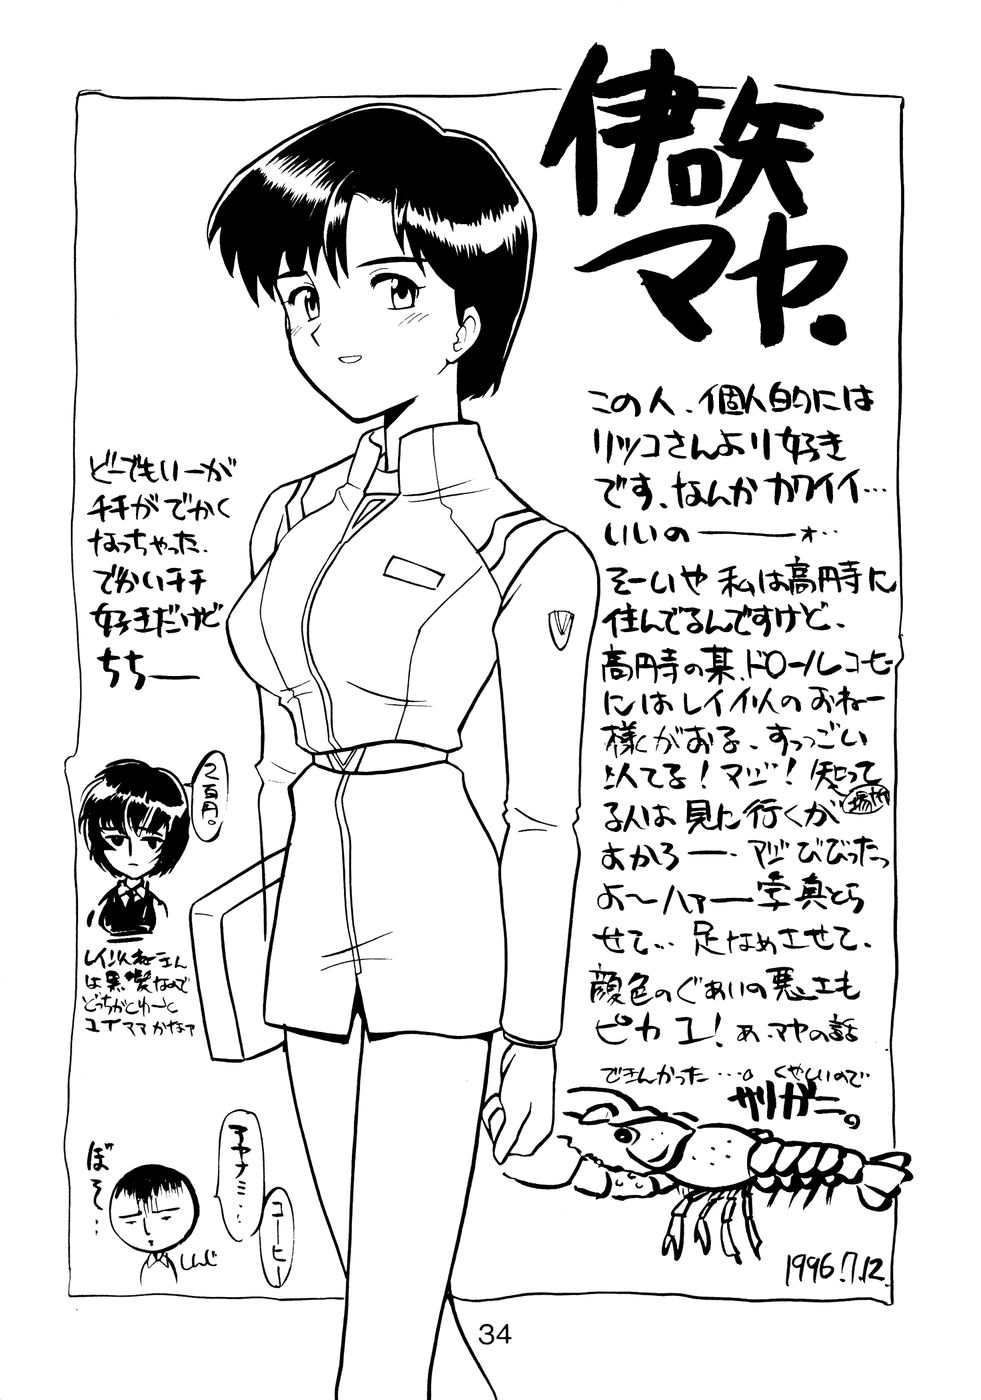 伊吹
マヤ.
この人、個人的には
リツコさんより好き
です、なんか カワイイ…
いいの———ォ..
そーいや 私は高円寺に
住んでるんですけど、
高円寺の某、ドロールコヒー
にはレイ似人のおねー
様がおる、すっっごい
似てる！マジ！知って
る人は見に行くが
場所
よかろー. マジびびったっ
よ〜ハァー写真とら
せて… 足なめさせて、
顔色のぐあいの悪さも
ピカ ユ！あ、マヤの話
できんかった…。くやしいので
ザリガニ。
どーでもいーが
チチがでかく
なっちゃった.
でかいチチ
好きだけど
ちちー
2百円。
レイ似ねーさん
は黒髪なので
どっちかとゆーと
ユイママかなァ
ぼそ…
コーヒー
しんじ
1996.7.12.
34